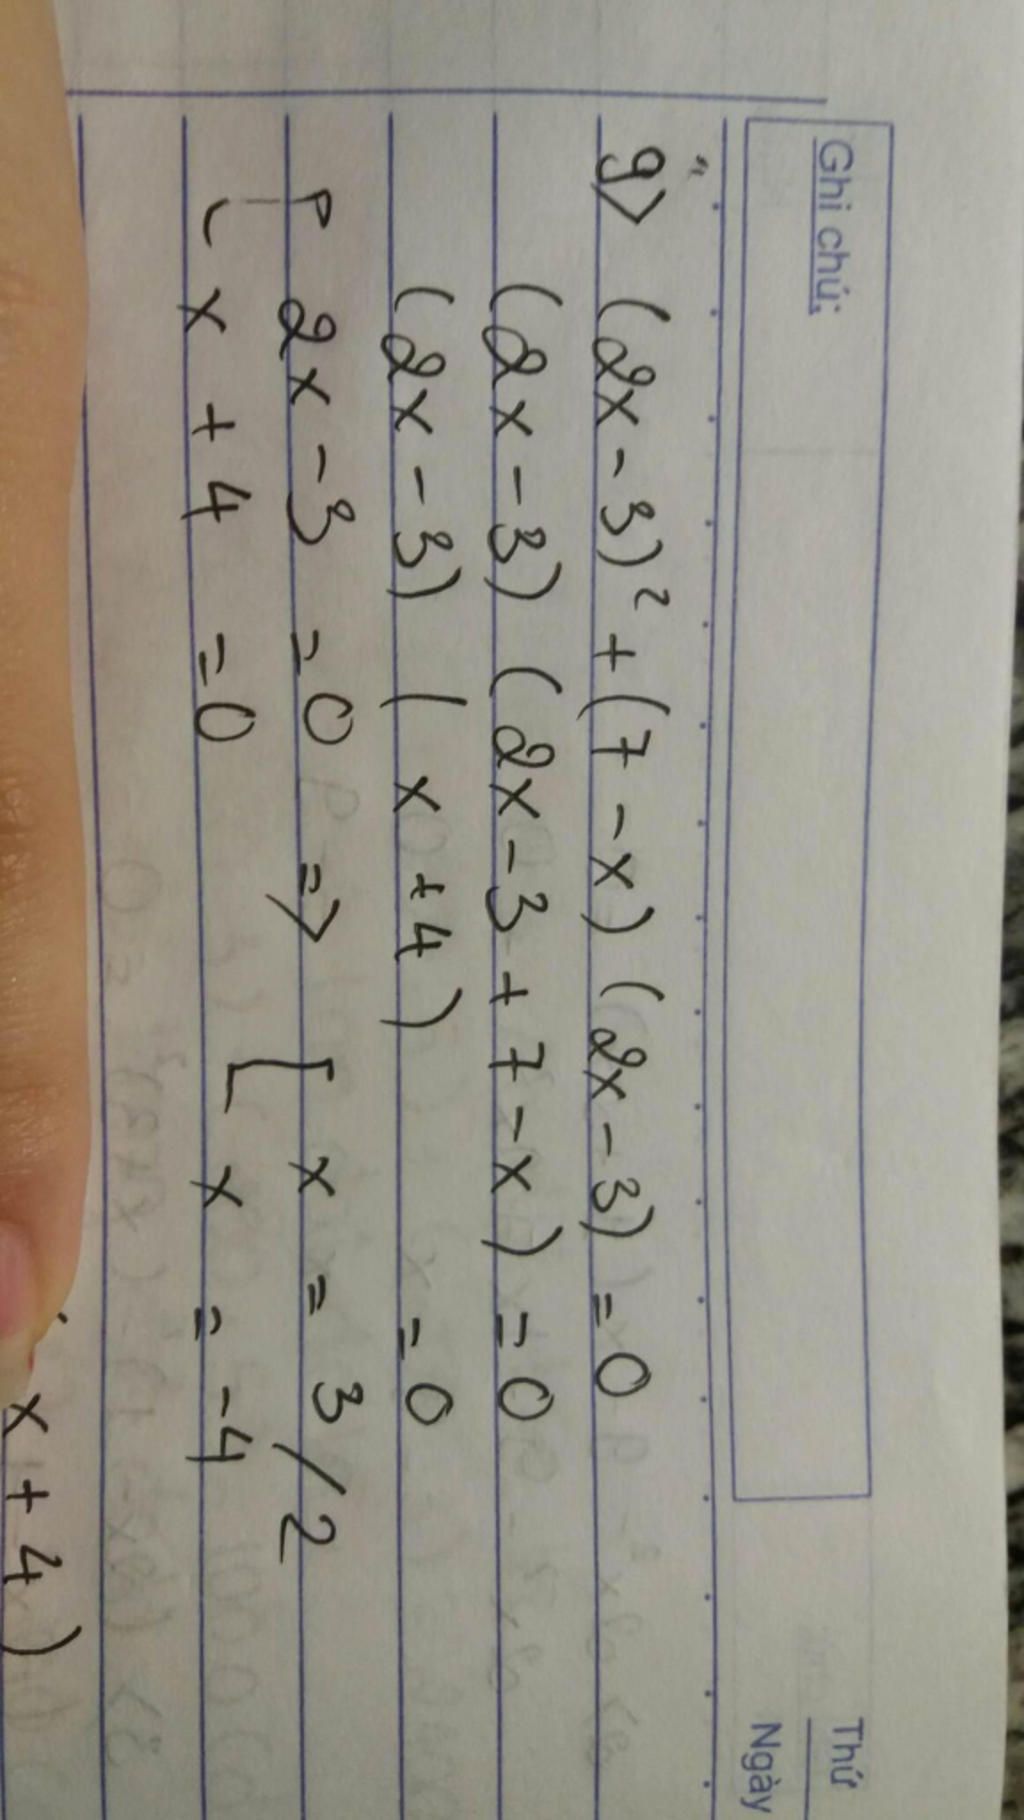 Ghi chú:
Thứ
Ngày
g> (2x - 3)² + (7 - x) (2x - 3) = 0
(2x - 3) (2x - 3 + 7 - x) = 0
(2x - 3) (x + 4) = 0
[ 2x - 3 = 0 => [ x = 3/2
[ x + 4 = 0 [ x = -4
x + 4)